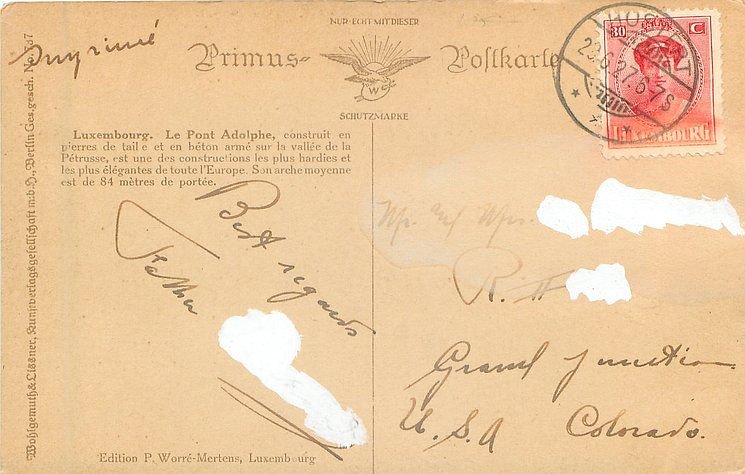 Imprimé
NUR ECHT MIT DIESER
Primus-Postkarte
W & L
SCHUTZMARKE
30 C
23.6.27.6-7S
LUXEMBOURG
Luxembourg. Le Pont Adolphe, construit en
pierres de tail e et en béton armé sur la vallée de la
Pétrusse, est une des constructions les plus hardies et
les plus élégantes de toute l'Europe. Son arche moyenne
est de 84 mètres de portée.
Best regards
Father
Mr. and Mrs.
R. II
Grand Junction
U.S.A Colorado.
Edition P. Worré-Mertens, Luxembourg
Wohlgemuth & Lissner, Kunstverlagsgesellschaft m.b.H., Berlin Ges. gesch. No. 737